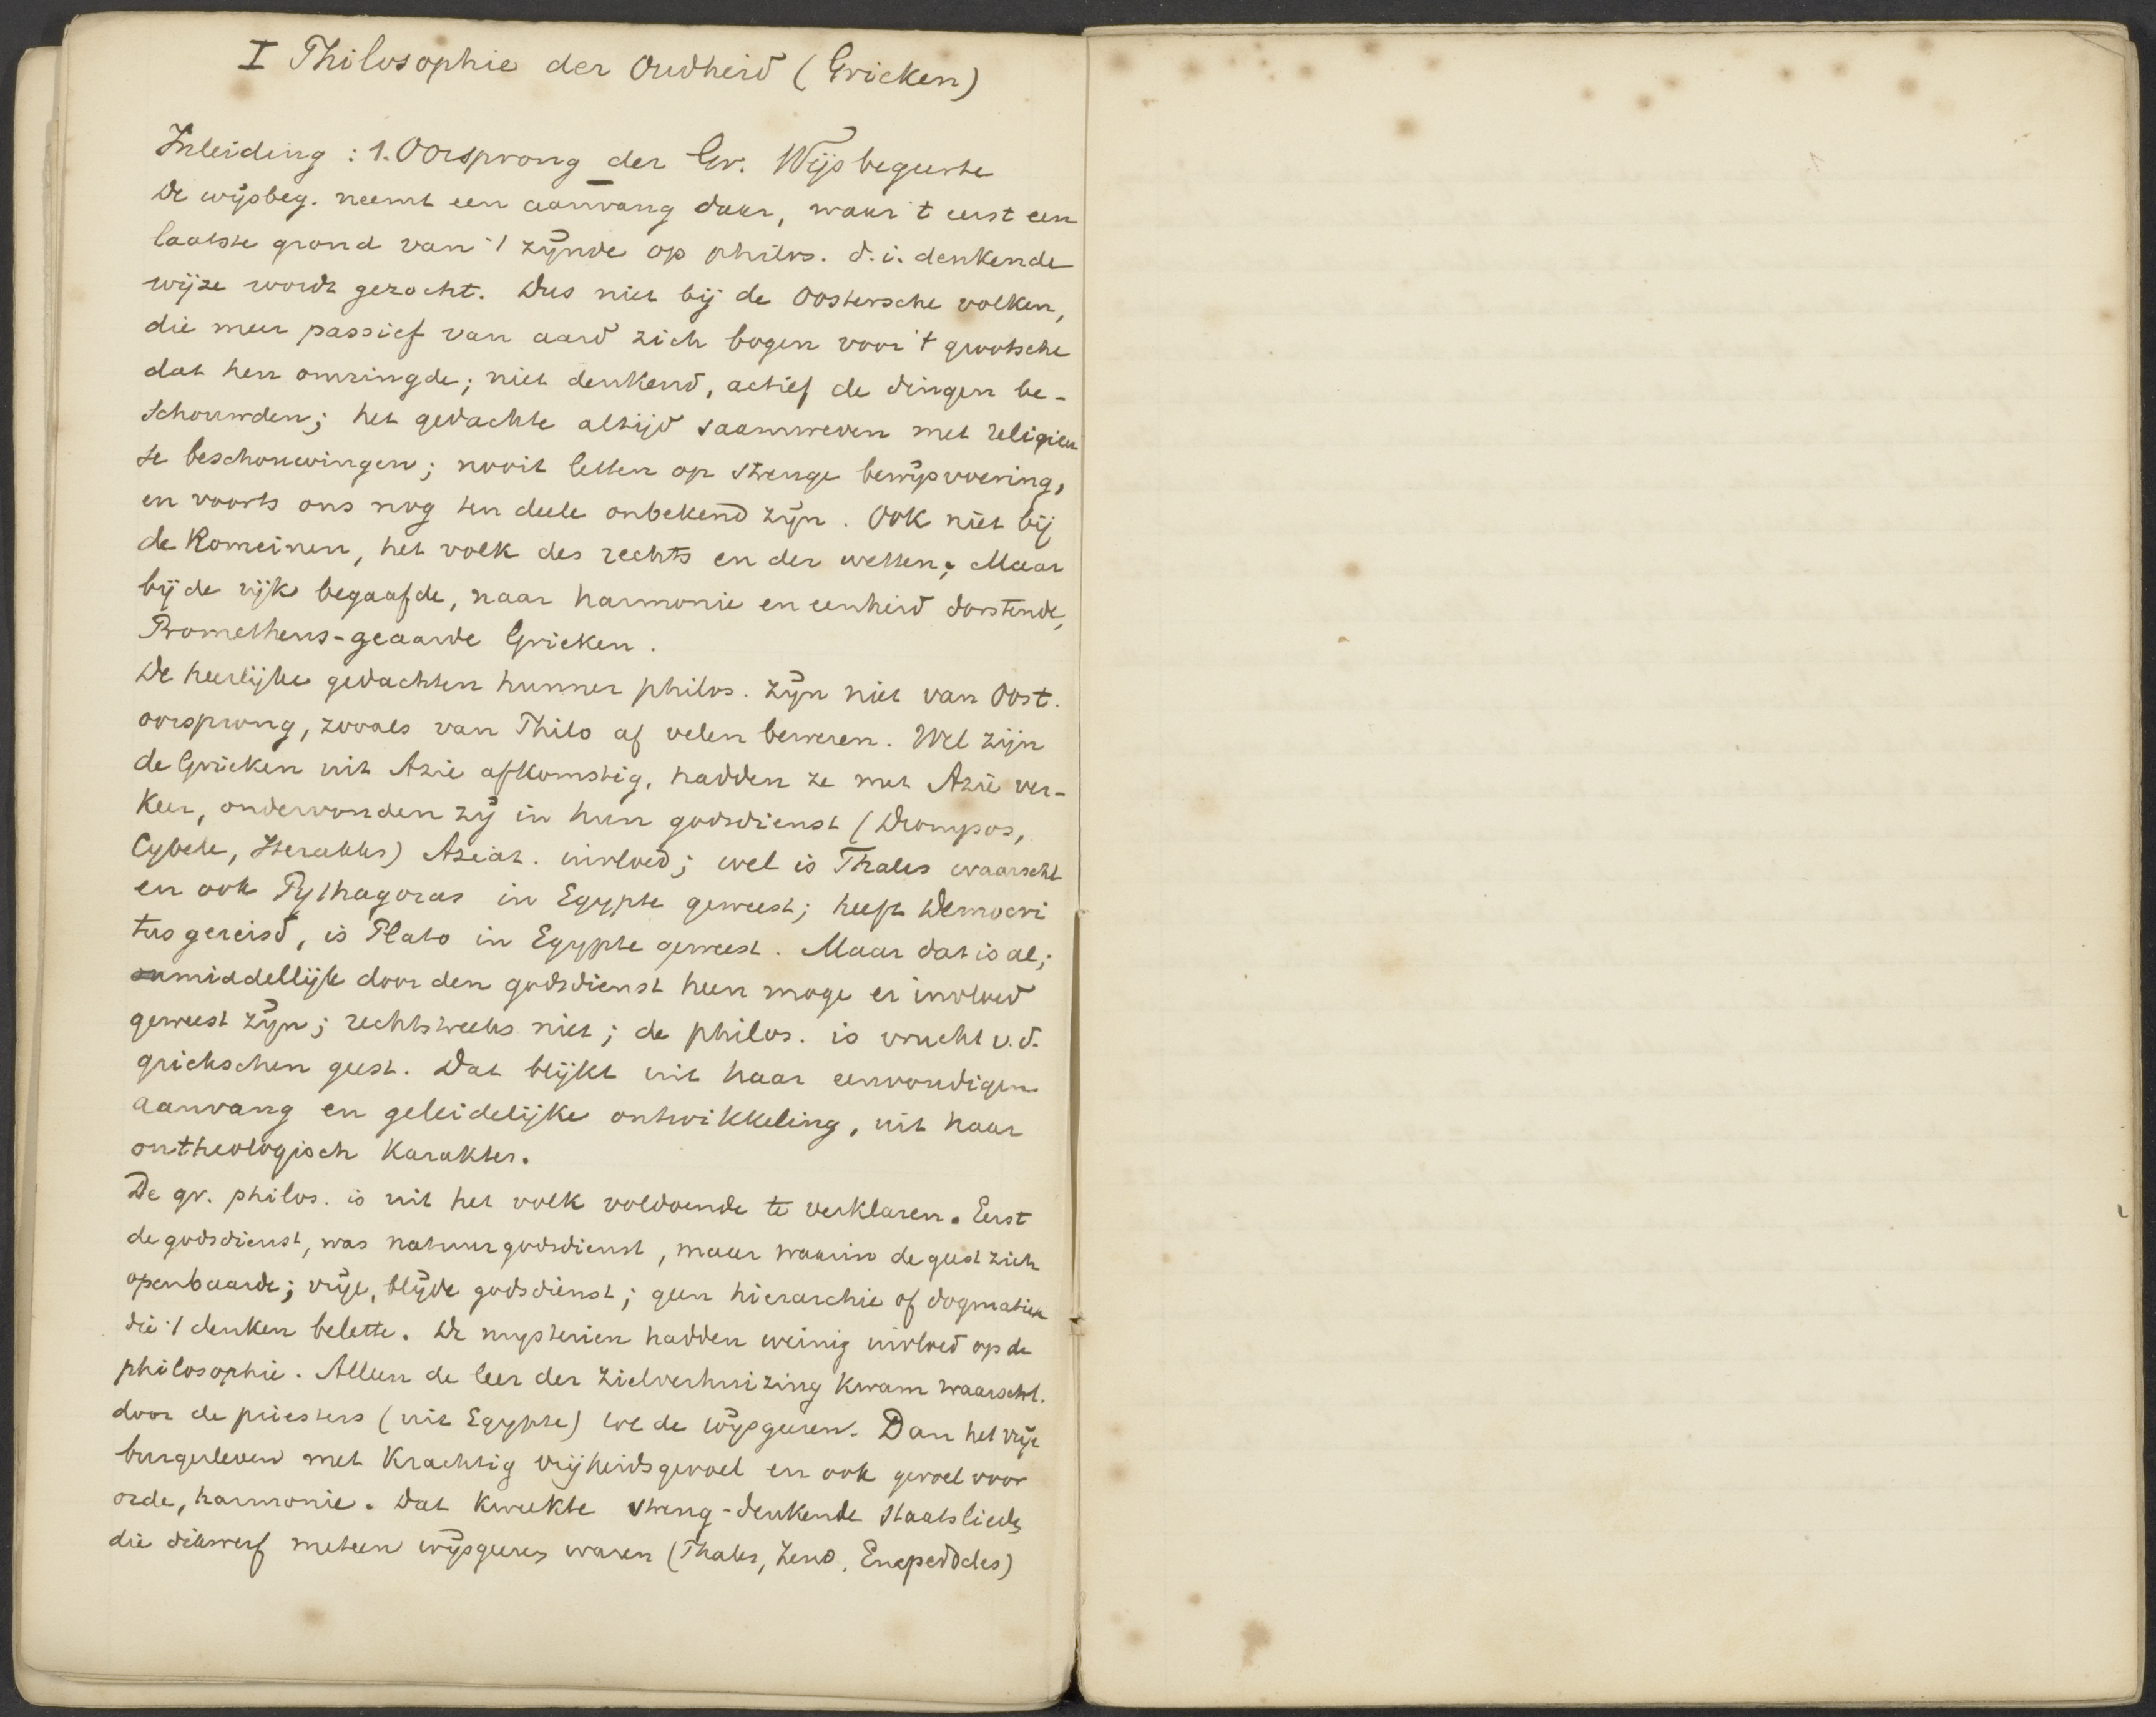 I Philosophie der Oudheid (Grieken)
Inleiding : 1. Oorsprong der Gr. Wijsbegeerte
De wijsbeg. neemt een aanvang daar, waar 't eerst een
laatste grond van 't zijnde op philos. d.i. denkende
wijze wordt gezocht. Dus niet bij de Oostersche volken,
die meer passief van aard zich bogen voor 't grootsche
dat hen omringde; niet denkend, actief de dingen be-
schouwden; het gedachte altijd saamweven met religieu
se beschouwingen; nooit letten op strenge bewijsvoering,
en voorts ons nog ten deele onbekend zijn. Ook niet bij
de Romeinen, het volk des rechts en der wetten; Maar
bij de rijk begaafde, naar harmonie en eenheid dorstende,
Prometheus-geaarde Grieken.
De heerlijke gedachten hunner philos. zijn niet van Oost.
oorsprong, zooals van Philo af velen beweren. Wel zijn
de Grieken uit Azie afkomstig, hadden ze met Azië ver-
keer, ondervonden zij in hun godsdienst (Dionysos,
Cybele, Herakles) Aziat. invloed; wel is Thales waarschl
en ook Pythagoras in Egypte geweest; heeft Democri
tus gereisd, is Plato in Egypte geweest. Maar dat is al;
middellijk door den godsdienst heen moge er invloed
geweest zijn; rechtstreeks niet; de philos. is vrucht v.d.
griekschen geest. Dat blijkt uit haar eenvoudigen
aanvang en geleidelijke ontwikkeling, uit haar
ontheologisch karakter.
De gr. philos. is uit het volk voldoende te verklaren. Eerst
de godsdienst, was natuurgodsdienst, maar waarin de geest zich
openbaarde; vrije, blijde godsdienst; geen hierarchie of dogmatiek
die 't denken belette. De mysterien hadden weinig invloed op de
philosophie. Alleen de leer der zielverhuizing kwam waarschl.
door de priesters (uit Egypte) tot de wijsgeeren. Dan het vrije
burgerleven met krachtig vrijheidsgevoel en ook gevoel voor
orde, harmonie. Dat kweekte streng-denkende staatslieden
die dikwerf meteen wijsgeeren waren (Thales, Zeno, Empedocles)